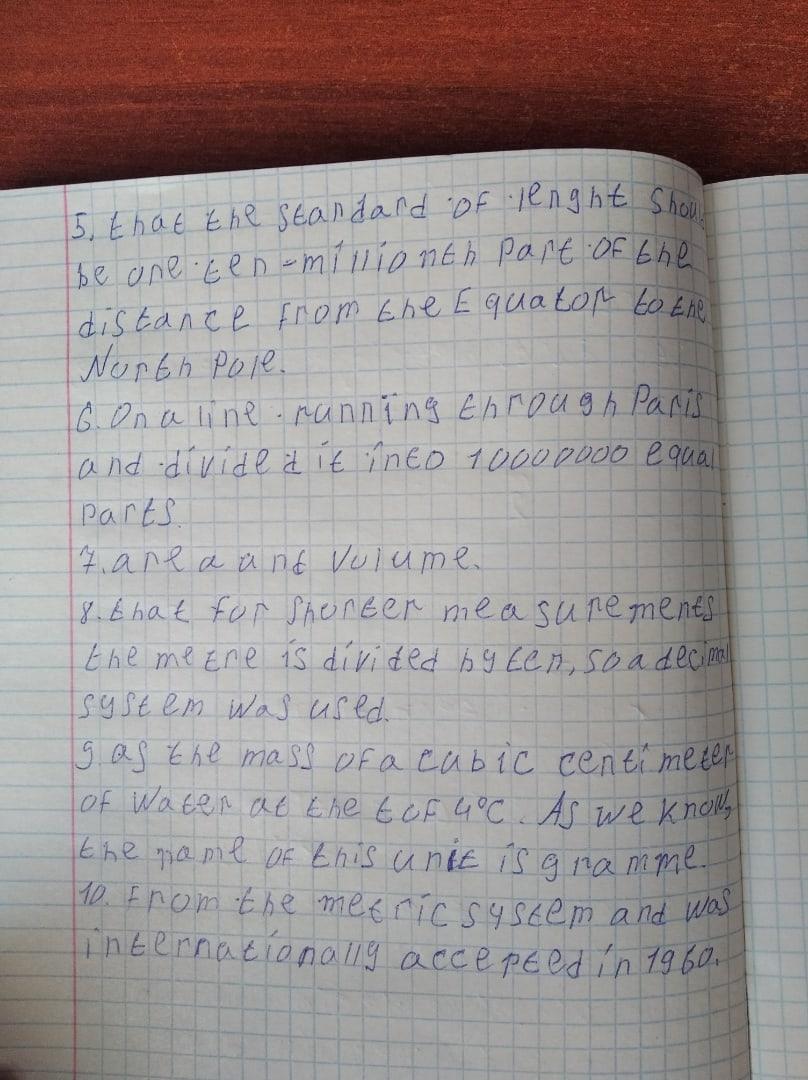 5. that the standard of lenght shou
be one ten-millionth part of the
distance from the Equator to the
North Pole.
6. On a line running through Paris
and divided it into 10000000 equal
parts.
7. area and volume.
8. that for shorter measurements
the metre is divided by ten, so a decimal
system was used.
9. as the mass of a cubic centimeter
of water at the t of 4°C. As we know,
the name of this unit is gramme.
10. From the metric system and was
internationally accepted in 1960.